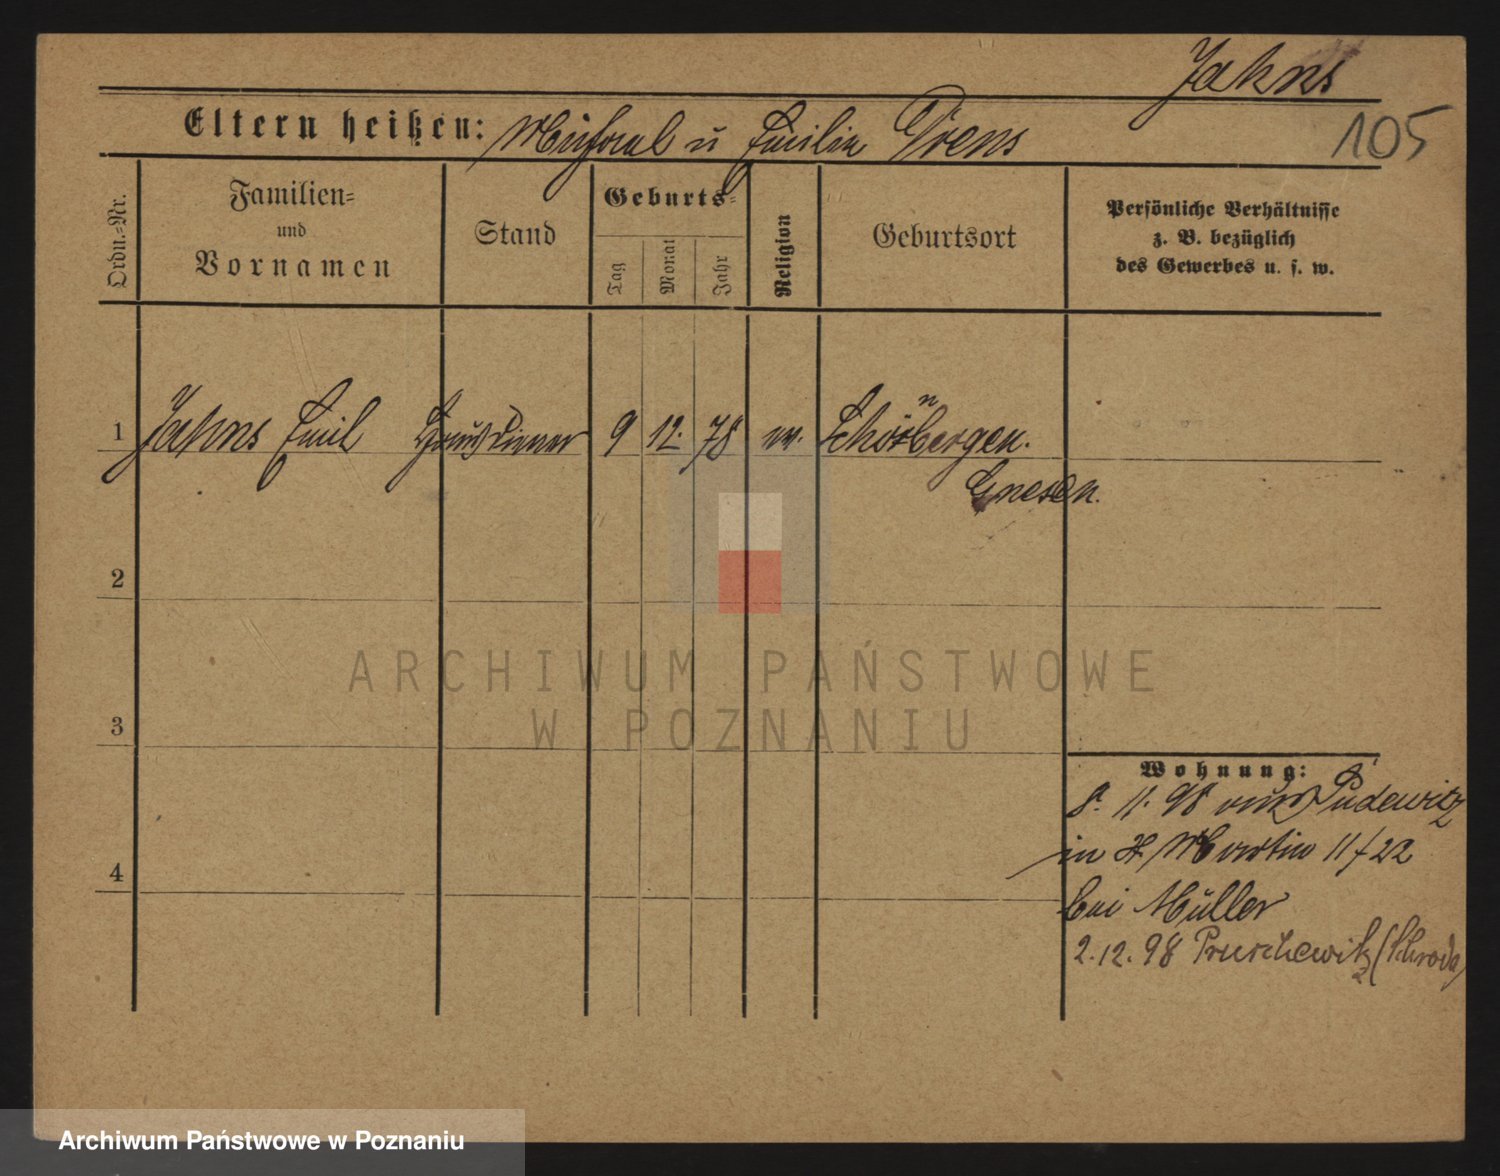 Jahns
105
Eltern heißen: Michael u Emilie Drens
Ordn.-Nr.
Familien-
und
Vornamen
Stand
Geburts-
Tag
Monat
Jahr
Religion
Geburtsort
Persönliche Verhältnisse
z. B. bezüglich
des Gewerbes u. s. w.
1 Jahns Emil Hausdiener 9 12. 78 ev. Schönbergen.
Gnesen.
2
3
4
Wohnung:
8. 11. 98 aus Pudewitz
in St Martin 11/22
bei Müller
2.12.98 Pruschewitz (Schroda)
ARCHIWUM PAŃSTWOWE
W POZNANIU
Archiwum Państwowe w Poznaniu